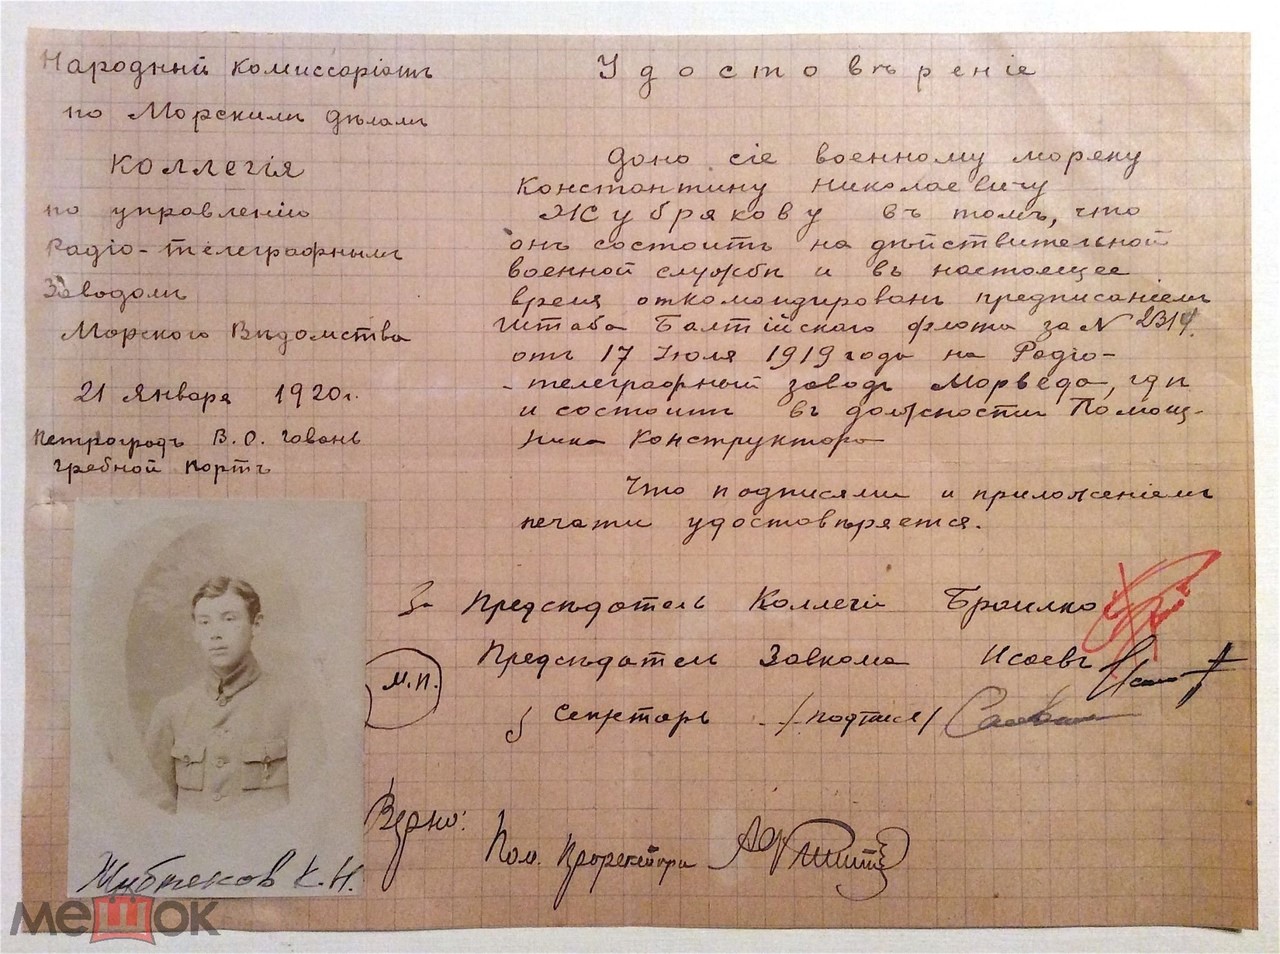 Народный комиссаріатъ
по Морскимъ дѣламъ
Коллегія
по управленію
Радіо-телеграфнымъ
Заводомъ
Морского Вѣдомства
21 Января 1920г.
Петроградъ В. О. Гавань
Гребной портъ
Удостовѣреніе
Дано сіе военному моряку
Константину Николаевичу
Жубрякову въ томъ, что
онъ состоитъ на дѣйствительной
военной службѣ и въ настоящее
время откомандированъ предписаніемъ
Штаба Балтійскаго флота за N 2314.
отъ 17 Июля 1919 года на Радіо-
-телеграфный заводъ Морведа, гдѣ
и состоитъ въ должности Помощ-
ника Конструктора
Что подписями и приложеніемъ
печати удостовѣряется.
За Предсѣдатель Коллегіи Браилко
Предсѣдатель Завкома Исаевъ
М.П.
Секретарь /подпись/
Верно:
Пом.
К. Н.
мешок